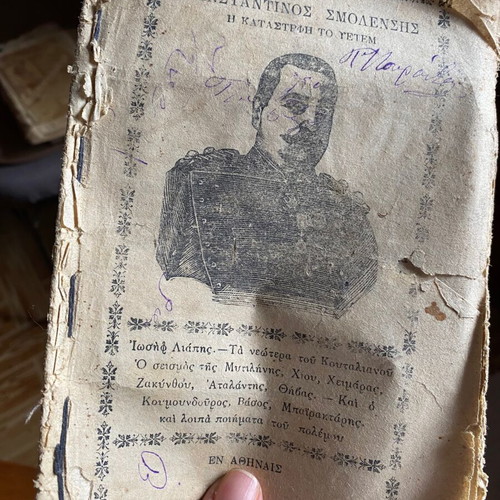 ΚΩΝΣΤΑΝΤΙΝΟΣ ΣΜΟΛΕΝΣΗΣ
Η ΚΑΤΑΣΤΡΦΗ ΤΟ ΥΕΤΕΜ
Ἰωσὴφ Λιάπης. — Τὰ νεώτερα τοῦ Κουταλιανοῦ
Ὁ σεισμὸς τῆς Μυτιλήνης, Χίου, Χειμάρας,
Ζακύνθου, Ἀταλάντης, Θήβας. — Καὶ ὁ
Κουμουνδοῦρος, Βάσος, Μπαϊρακτάρης.
καὶ λοιπὰ ποιήματα τοῦ πολέμου
ΕΝ ΑΘΗΝΑΙΣ